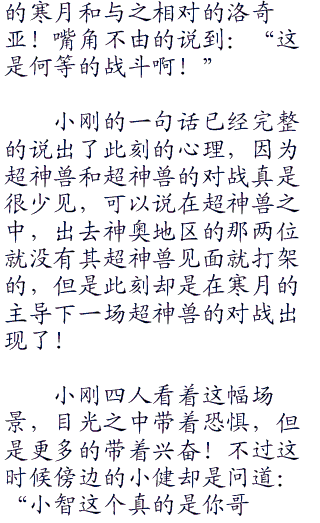 的寒月和与之相对的洛奇
亚！嘴角不由的说到：“这
是何等的战斗啊！”
小刚的一句话已经完整
的说出了此刻的心理，因为
超神兽和超神兽的对战真是
很少见，可以说在超神兽之
中，出去神奥地区的那两位
就没有其超神兽见面就打架
的，但是此刻却是在寒月的
主导下一场超神兽的对战出
现了！
小刚四人看着这幅场
景，目光之中带着恐惧，但
是更多的带着兴奋！不过这
时候傍边的小健却是问道：
“小智这个真的是你哥